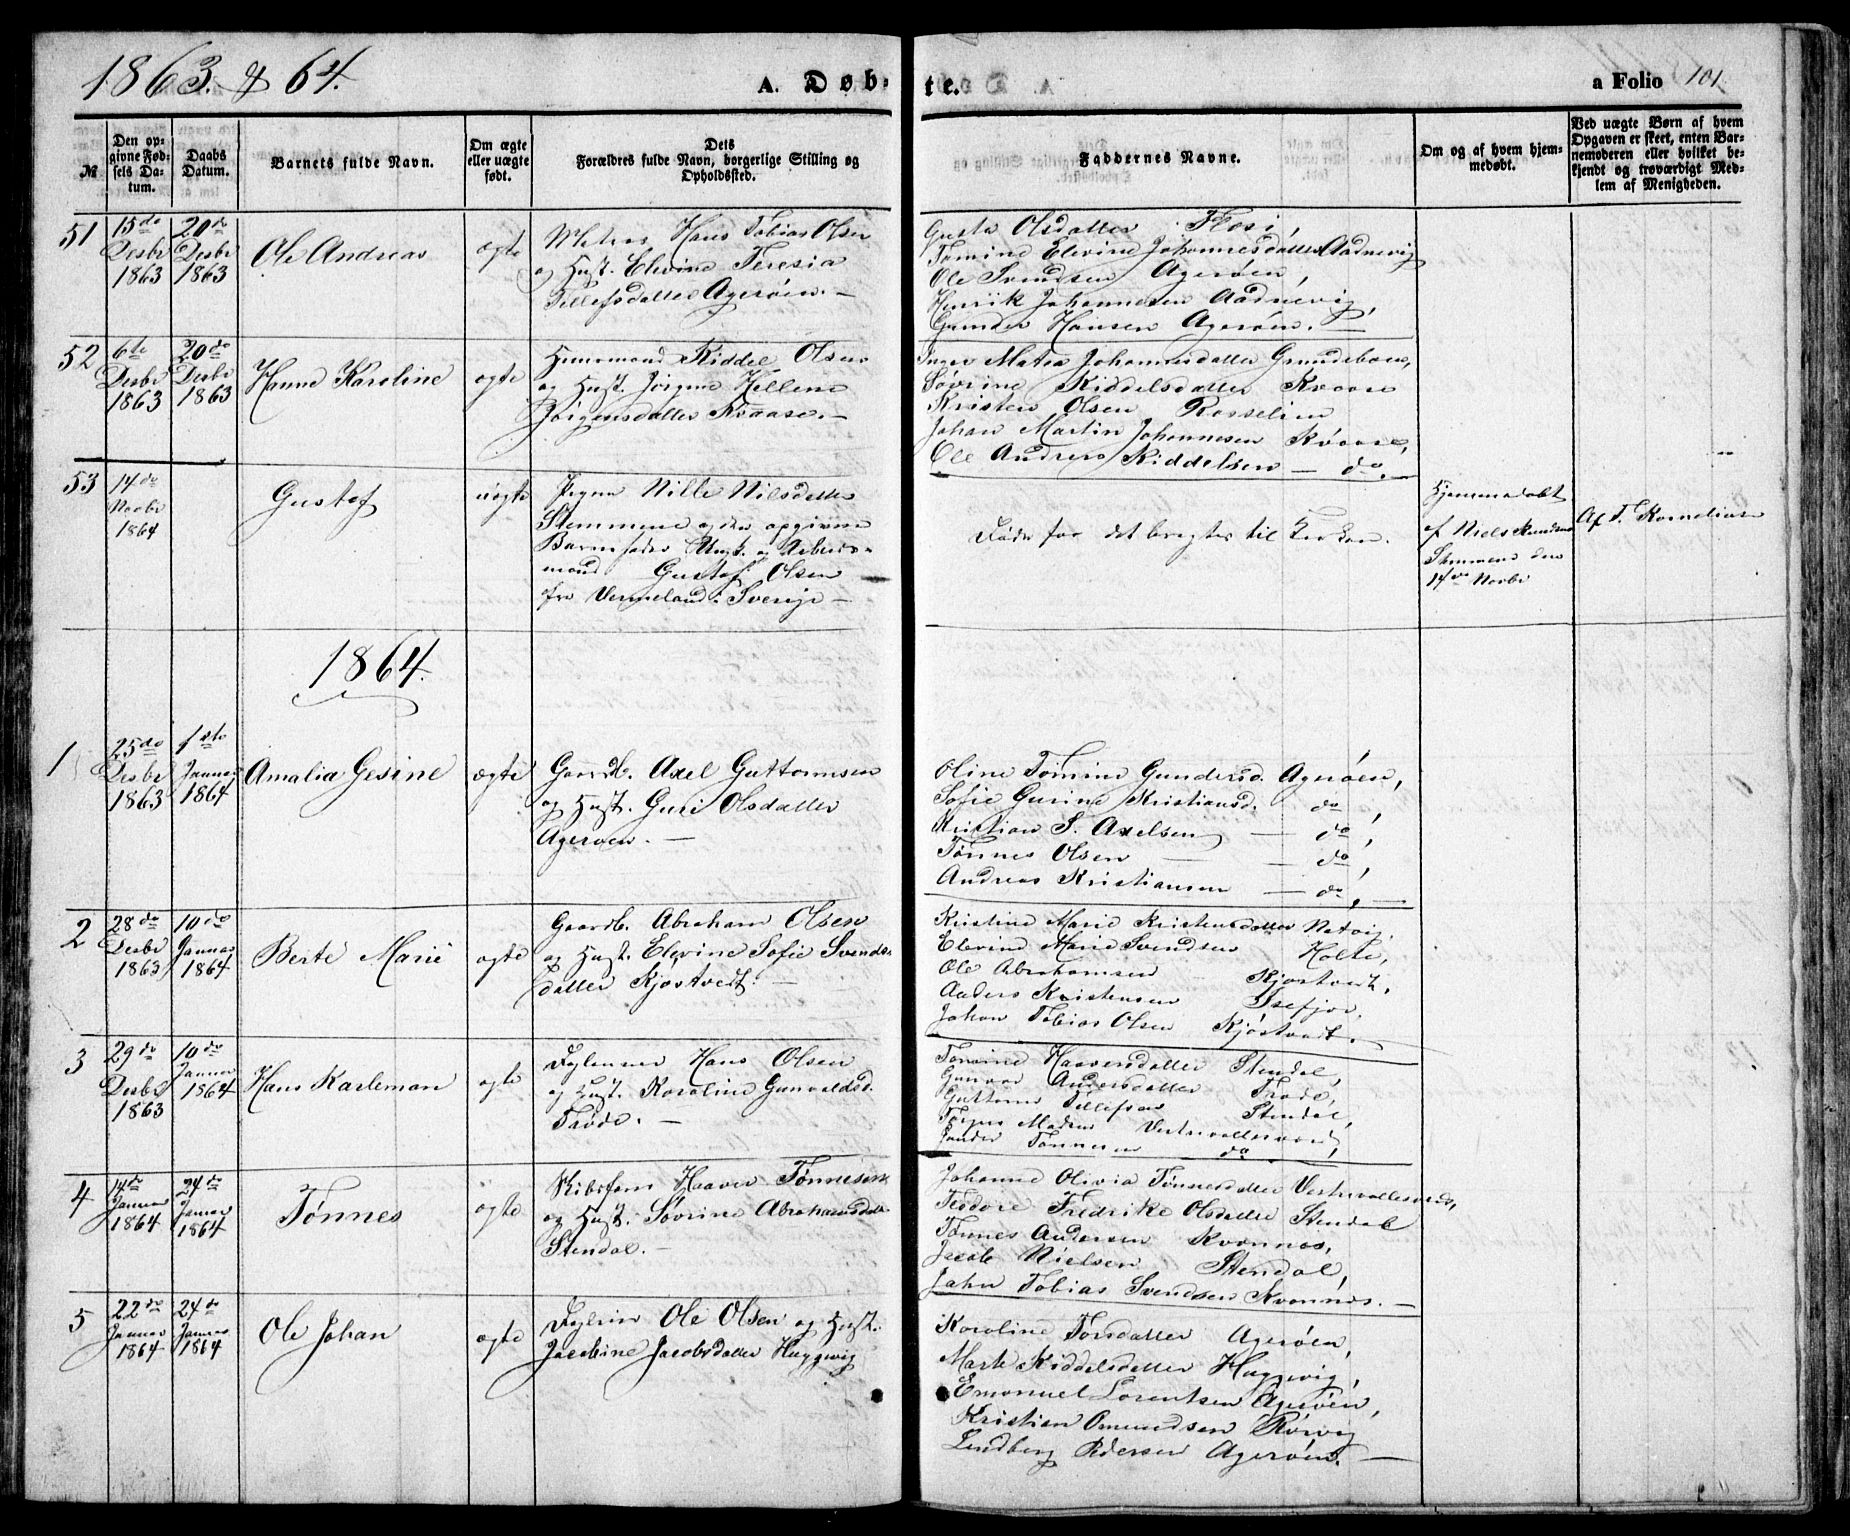 1863. & 64.
A. Døb-te.
a Folio 101.
№
Den op-
givne Fød-
sels Da-
tum.
Daabs
Datum.
Barnets fulde Navn.
Om ægte
eller uægte
født.
Dets
Forældres fulde Navn, borgerlige Stilling og
Opholdssted.
Faddernes Navne.
Om og af hvem hjem-
medøbt.
Ved uægte Børn af hvem
Opgaven er skeet, enten Bar-
nemoderen eller hvilket be-
kjendt og troværdigt Med-
lem af Menigheden.
51
15de
Desbr
1863
20de
Desbr
1863
Ole Andreas
ægte
Matros Hans Tobias Olsen
og Hust. Elevine Teresia
Tellefsdatter Agerøen. —
Gusta Olsdatter Flosi,
Tomine Elevine Johannesdatter Aadnevig
Ole Svendsen Agerøen,
Henrik Johannesen Aadnevig,
Gunder Hansen Agerøen. —
52
6te
Desbr
1863
20de
Desbr
1863
Hanne Karoline
ægte
Huusmand Kiddel Olsen
og Hust. Jørgine Hellene
Jørgensdatter Kvaase. —
Inger Matea Johannesdatter
Søvrine Kiddelsdatter Kvaase
Kristen Olsen Rosselien
Johan Martin Johannesen Kvaase,
Ole Andreas Kiddelsen — do. —
53
14de
Novbr
1864
Gustaf
uægte
Pigen Nille Nilsdatter
Stemmene og den opgivne
Barnefader Ungk. og Arbeids-
mand Gustaf Olsen
fra Vermeland i Sverige —
Døde før det bragtes til Kirken.
Hjemmedøbt
af Niels Knudsen
Stemmene den
14de Novbr
Af T. Kornelius
1864.
1
25de
Desbr
1863
1ste
Januar
1864
Amalia Gesine
ægte
Gaardb. Axel Guttormsen
og Hust. Guri Olsdatter
Agerøen. —
Oline Tomine Gundersd. Agerøen,
Sofie Gurine Kristiansd. do,
Kristian S. Axelsen — do,
Tønnes Olsen — do,
Andreas Kristiansen — do, —
2
28de
Desbr
1863
10de
Januar
1864
Berte Marie
ægte
Gaardb. Abraham Olsen
og Hust. Elevine Sofie Svends-
datter Kjøstvedt. —
Kristine Marie Kristensdatter Natvig,
Elevine Marie Svendsen Holte,
Ole Abrahamsen Kjøstvedt,
Anders Kristensen Isefjær.
Johan Tobias Olsen Kjøstvedt. —
3
29de
Desbr
1863
10de
Januar
1864
Hans Karleman
ægte
Inderst Hans Olsen
og Hust. Karoline Gunvaldsd.
Trøde. —
Tomine Haaversdatter Stendal,
Gunvor Andersdatter Trøde,
Guttorm Tellefsen Stendal,
Madsen Vestrevallesverd,
Gunder Tønnesen do
4
14de
Januar
1864
24de
Januar
1864
Tønnes
ægte
Skibstøm. Haaver Tønnesen
og Hust. Søvrine Abrahamsdatter
Stendal. —
Johanne Olivia Tønnesdatter Vestrevallesverd,
Teodore Fredrike Olsdatter Stendal
Tønnes Andersen Kvannes,
Jacob Nielsen Stendal,
John Tobias Svendsen Kvannes. —
5
22de
Januar
1864
24de
Januar
1864
Ole Johan
ægte
Ole Olsen og Hust.
Jacobine Jacobsdatter Haggevig
Karoline Torsdatter Agerøen,
Marte Kiddelsdatter Haggevig,
Emanuel Lorentsen Agerøen,
Kristian Omundsen Rørvig
Lindberg Pedersen Agerøen. —